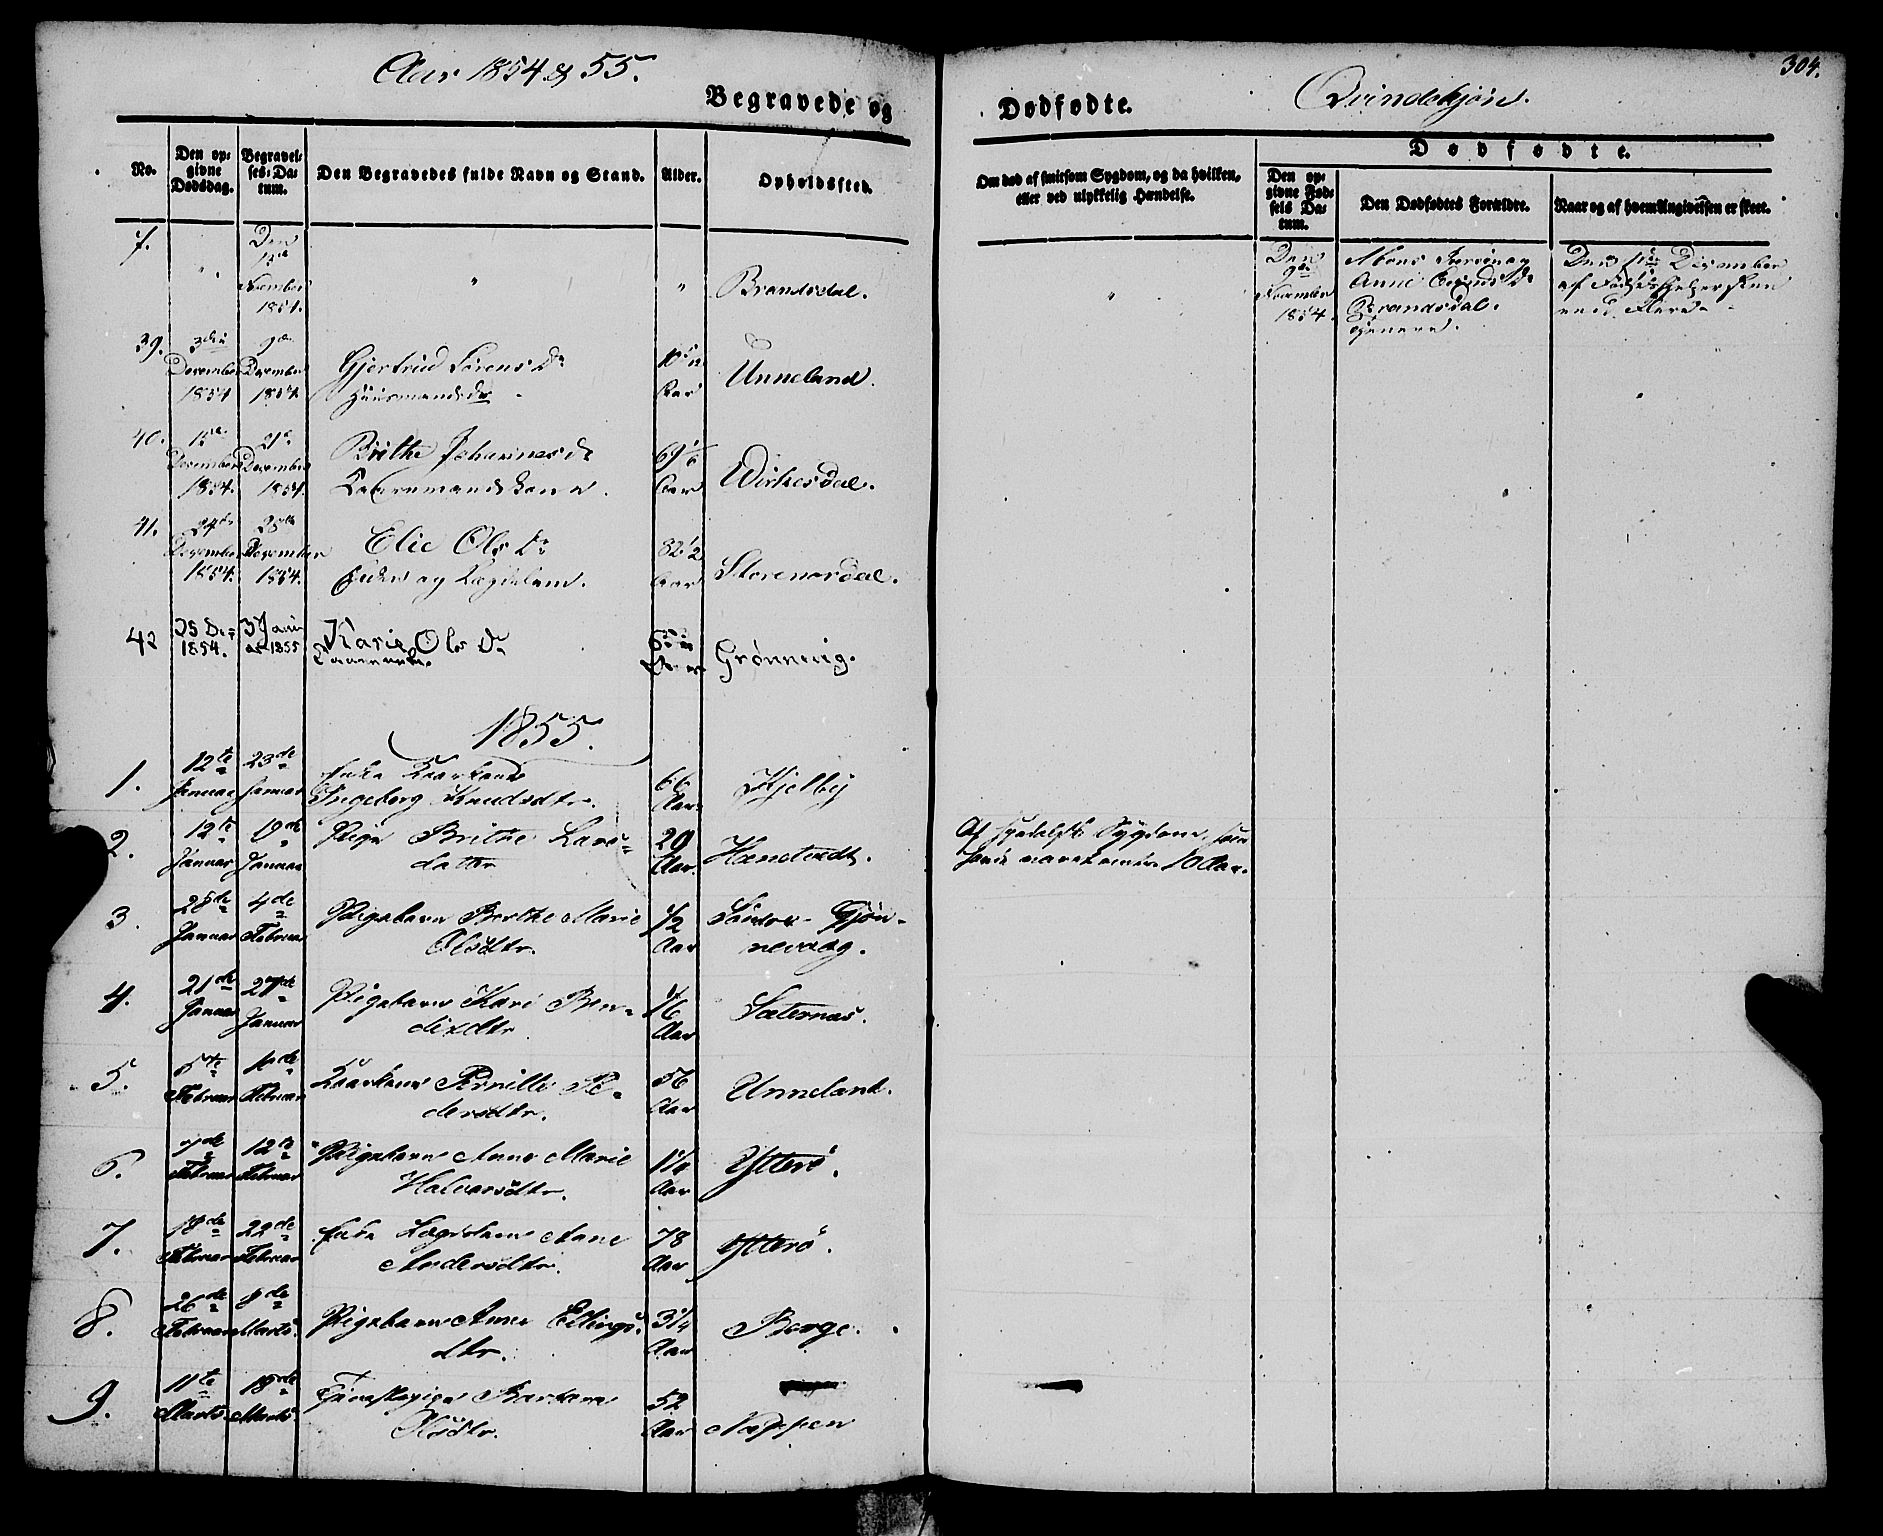 Aar 1854 & 55.
Begravede og
Dødfødte.
Qvindekjøn.
304.
No.
Den op-
givne
Dødsdag.
Begravel-
ses-Da-
tum.
Den Begravedes fulde Navn og Stand.
Alder.
Opholdssted.
Om død af smitsom Sygdom, og da hvilken,
eller ved ulykkelig Hændelse.
Dødfødte.
Den op-
givne Fød-
sels Da-
tum.
Den Dødfødtes Forældre.
Naar og af hvem Angivelsen er skeet.
7.
Den
1854.
Brandsdal.
Den
9de
1854.
Mons
Anne
Brandsdal.
Den December
af
39.
3die
December
1854
9de
December
1854.
Gjertrud Sørens Dr
Huusmandsdr
Aar
Unneland.
40.
December
1854.
21de
December
1854.
Brithe Johannes Dr
69 1/6
Aar
Wirkesdal.
41.
24de
December
1854.
28de
December
1854.
Elie Ols Dr
og Lægdslem.
82 1/2
Aar
Storemordal.
42
1854.
3 Janu
ar 1855
Karie Ols Dr
Grønnevig.
1855.
1.
12te
Januar
23de
Januar
Enke Kaarkone
Ingeborg Knudsdtr.
66
Aar.
Kjelby
2.
12te
Januar
19de
Januar
Pige Brithe Lars-
datter
29
Aar.
Hanstvedt.
Af spedalsk Sygdom, som
10 Aar.
3.
28de
Januar
4de
Februar
Pigebarn Berthe Marie
Olsdtr.
1/2
Aar
Søndre Gjøn-
nevaag.
4.
21de
Januar
27de
Januar
Pigebarn Kari Ben-
dixdtr
1/6
Aar
Sæternæs.
5.
Februar
Februar
Kaarkone Pernille Pe-
dersdtr.
56
Aar
Unneland.
6.
7de
Februar
12te
Februar
Pigebarn Anne Marie
Halvorsdtr.
1 1/4
Aar
Ytterø.
7.
18de
Februar
22de
Februar
Enke Lægdslem Anne
Andersdtr.
78
Aar
Ytterø.
8.
26de
Februar
8de
Marts.
Pigebarn Anne Ellings-
dtr.
3 1/4
Aar
Borge.
9.
11te
Marts.
18de
Marts.
Tjenestepige Barbara
Olsdtr.
52
Aar
Nappen